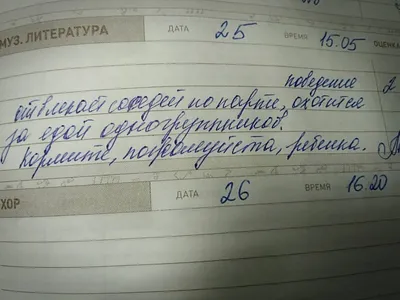 МУЗ. ЛИТЕРАТУРА ДАТА 25 ВРЕМЯ 15.05 ОЦЕНКА
поведение 2
отвлекает соседей по парте, охотится
за едой одногруппников.
Кормите, пожалуйста, ребенка.
ХОР ДАТА 26 ВРЕМЯ 16.20